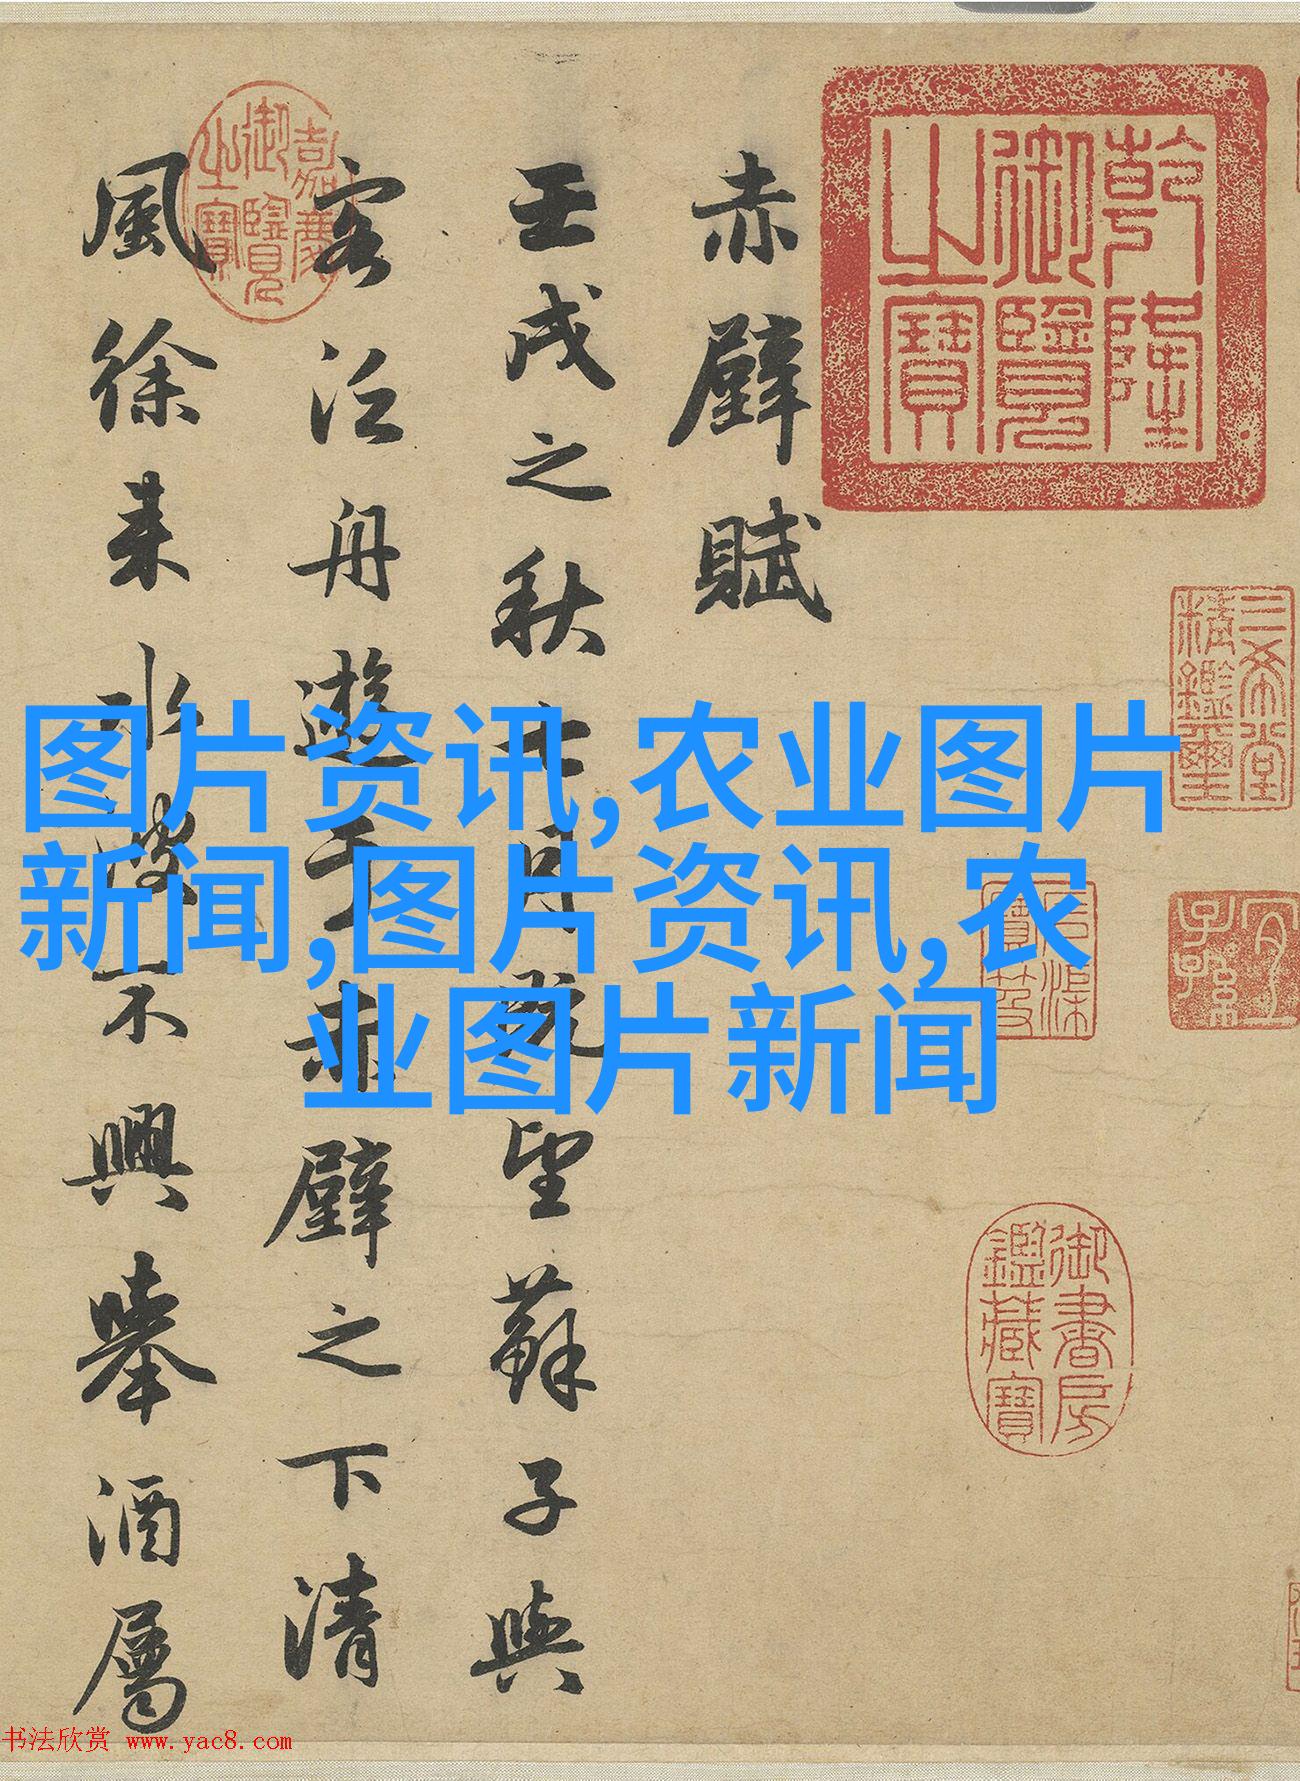 乾隆御覽之寶
三希堂精鑑璽
宜子孫
石渠寶笈
御書房鑑藏寶
赤壁賦
壬戌之秋七月既望蘇子與
客泛舟遊于赤壁之下清
風徐来水波不興舉酒屬
嘉慶御覽之寶
图片资讯,农业图片
新闻,图片资讯,农
业图片新闻
书法欣赏 www.yac8.com